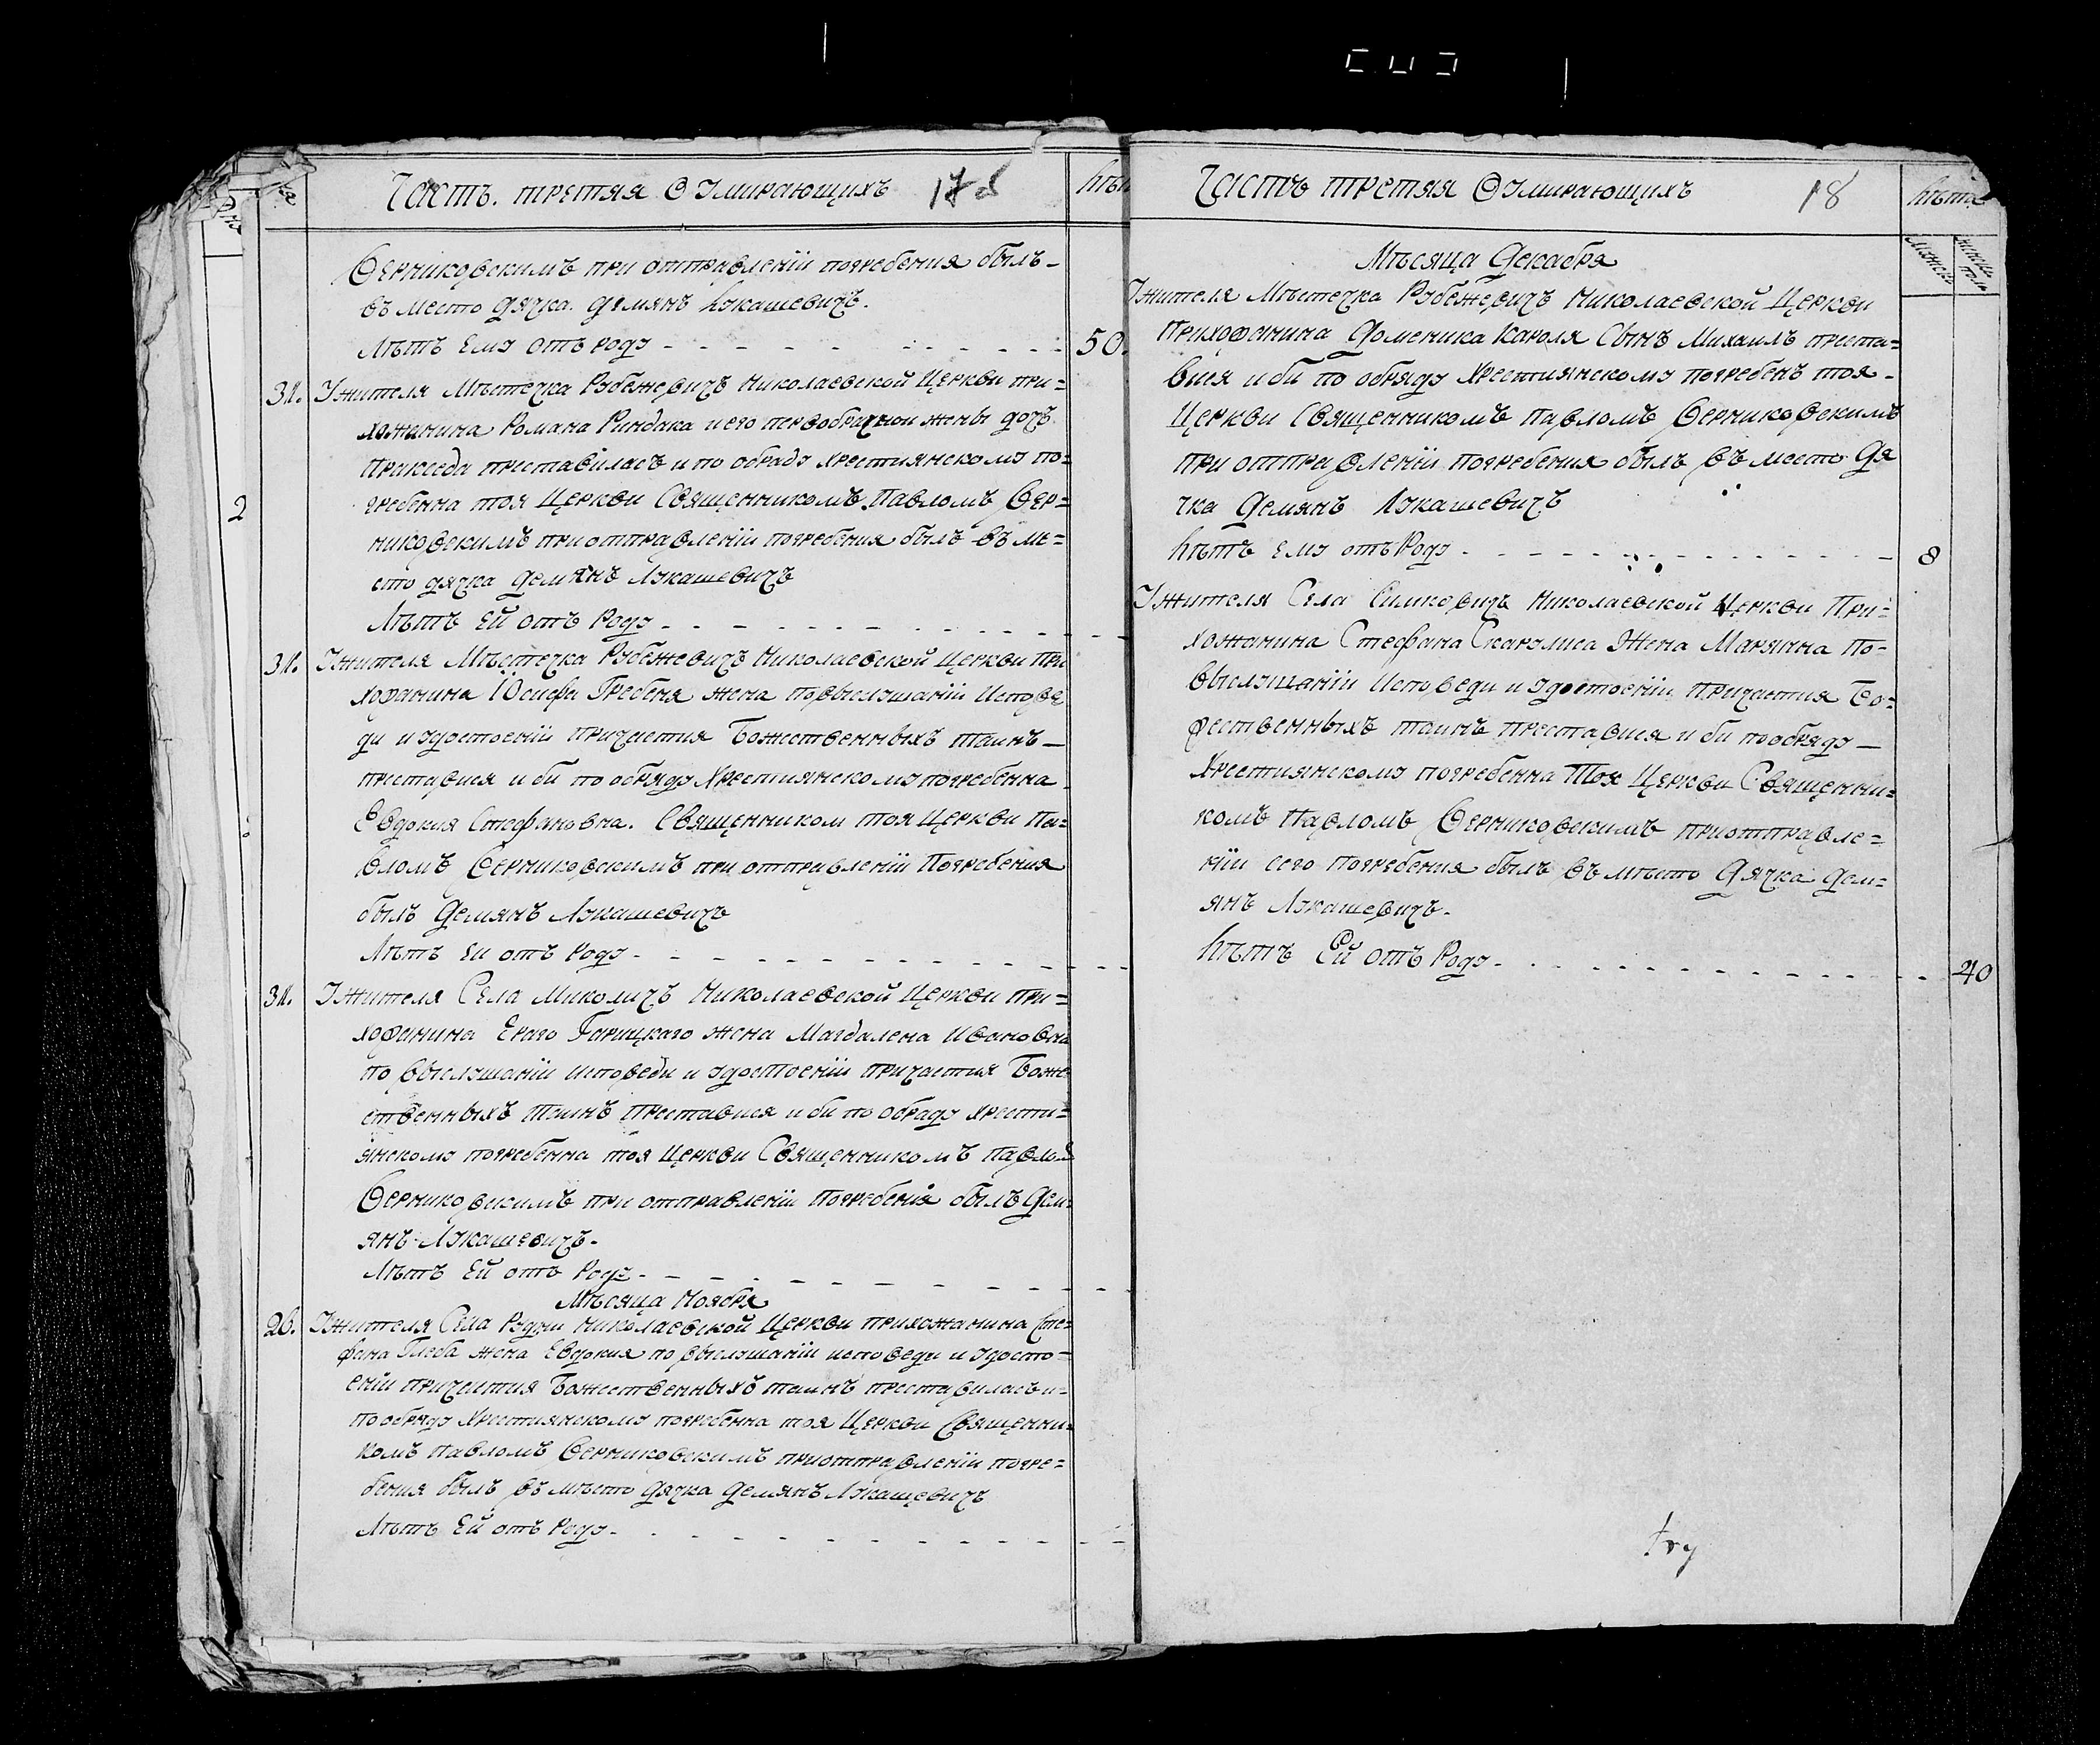 Часть. третяя О Умирающихъ 17
Лѣт
Верниковскимъ при отправленіи погребения былъ
въ место дячка. Демянъ Лукашевичъ.
Лѣтъ Ему отъ роду 50.
31. У жителя Мѣстечка Рубежевичъ Николаевской Церкви при=
хожанина Романа Риндака и его первобрачной жены дочъ
Пракседа преставиласъ и по обряду Хрестиянскому по=
гребенна тоя Церкви Священникомъ Павломъ Вер=
никовскимъ при отправленіи погребения былъ въ ме=
сто дячка Демянъ Лукашевичъ
Лѣтъ Ей отъ Роду
31. У жителя Мѣстечка Рубежевичъ Николаевской Церкви При
хожанина Юсифа Гребеня жена по выслушаніи Испове
ди и удостоеніи причастия Божественныхъ таинъ
преставися и би по обряду Хрестиянскому погребенна
Евдокия Стефановна. Священником тоя Церкви Па=
вломъ Верниковскимъ при отправленіи Погребения
былъ Демянъ Лукашевичъ
Лѣтъ Еи отъ Роду
31. У жителя Села Миколичъ Николаевской Церкви при=
хожанина Гарицкаго жена Магдалена Ивановна
по выслушаніи исповеди и удостоеніи причастия Боже
ственныхъ таинъ преставися и би по обряду хрести=
янскому погребенна тоя Церкви Священникомъ Павлом
Верниковскимъ при отправленіи погребения былъ Дем=
янъ Лукашевичъ.
Лѣтъ Ей отъ Роду
Мѣсяца Ноября
26. У жителя Села Рудни Николаевской Церкви прихожанина Сте=
фана Глеба жена Евдокия по выслушаніи исповеди и удосто=
еніи причастия Божественныхъ таинъ преставиласъ и
по обряду Хрестиянскому погребенна тоя Церкви Священни=
комъ Павломъ Верниковскимъ при отправленіи погре=
бения былъ въ мѣсто дячка Демянъ Лукашевичъ
Лѣтъ Ей отъ Роду
2
Часть третяя О Умирающихъ 18
Лѣта
Мужска
женска пола
Мѣсяца Декабря
У жителя Мѣстечка Рубежевичъ Николаевской Церкви
Прихожанина Доменика Кароля Сынъ Михаилъ преста=
вися и би по обряду Хрестиянскому погребенъ тоя
Церкви Священникомъ Павломъ Верниковскимъ
при отправленіи погребения былъ въ место Дя
чка Демянъ Лукашевичъ
Лѣтъ ему отъ Роду 8
У жителя Села Симковичъ Николаевской Церкви При=
хожанина Стефана Жена Марянна По=
выслушаніи Исповеди и удостоеніи Причастия Бо=
жественныхъ таинъ преставися и би по обряду
Хрестиянскому погребенна Тоя Церкви Священни=
комъ Павломъ Верниковскимъ при отправле=
ніи сего погребения былъ въ мѣсто Дячка Дем=
янъ Лукашевичъ.
Лѣтъ Ей отъ Роду 40